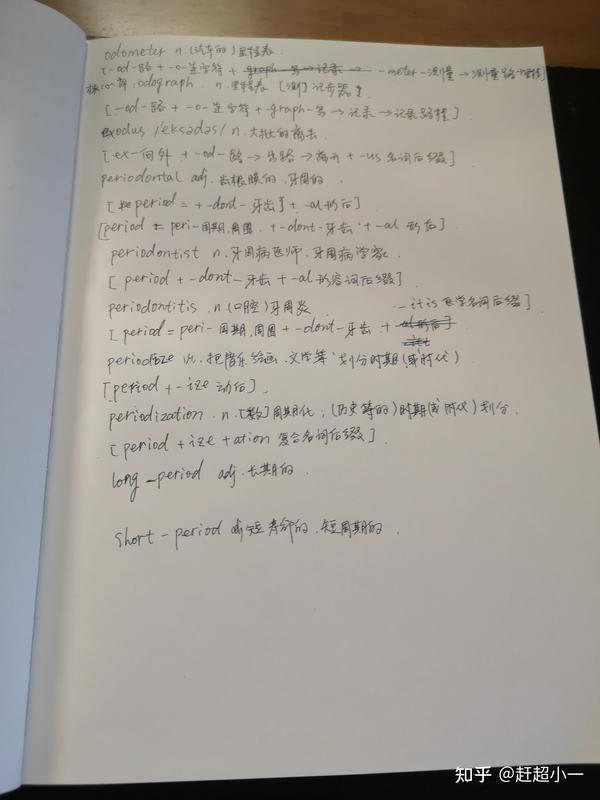 odometer n. (汽车的) 里程表.
[-od-路 + -o-连字符 + graph-写→记录→ -meter-测量→测量路→里程]
odograph. n. 里程表 [测] 记步器.
[-od-路 + -o-连字符 + -graph-写→记录→记录路程]
exodus /'eksədəs/ n. 大批的离去
[ex-向外 + -od-路→出路→离开 + -us 名词后缀]
periodontal adj. 齿根膜的. 牙周的.
[period = + -dont-牙齿] + -al 形后]
[period = peri-周期.周围. + -dont-牙齿 + -al 形后]
periodontist n. 牙周病医师. 牙周病学家.
[period + -dont-牙齿 + -al 形容词后缀]
periodontitis. n. (口腔) 牙周炎 -itis 医学名词后缀]
[period = peri-周期.周围 + -dont-牙齿 + -al 形后]
periodize vt. 把音乐.绘画.文学等划分时期 (或时代)
[period + -ize 动后].
periodization. n. [数] 周期化; (历史等的) 时期 (或时代) 划分.
[period + ize + ation 复合名词后缀].
long-period adj. 长期的.
short-period adj 短寿命的. 短周期的.
知乎 @赶超小一